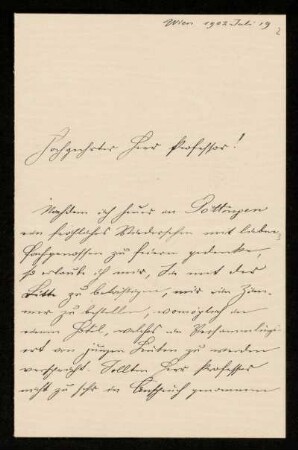 Wien 1902 Juli 19
Hochgeehrter Herr Professor!
Nachdem ich heuer in Göttingen
ein fröhliches Wiedersehen mit lieben
Fachgenossen zu feiern gedenke,
so erlaube ich mir, Sie mit der
Bitte zu belästigen, mir ein Zim-
mer zu bestellen, womöglich in
einem Hotel, welches ein Versammlungs-
ort von jungen Leuten zu werden
verspricht. Sollten Herr Professor
nicht zu sehr in Anspruch genommen